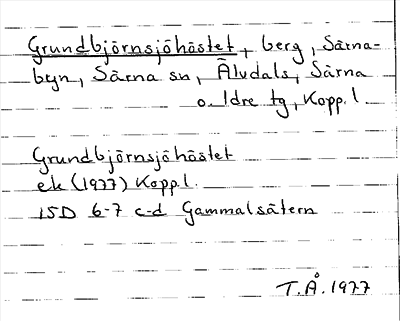 Grundbjörnsjöhöstet, berg, Särna-
byn, Särna sn, Älvdals, Särna
o. Idre tg, Kopp. l.
Grundbjörnsjöhöstet
ek (1977) Kopp l.
15D 6-7 c-d Gammalsätern
T.Å. 1977